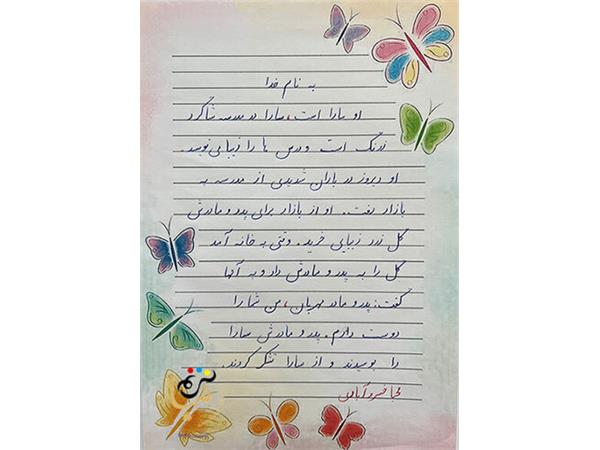 به نام خدا
او سارا است، سارا در مدرسه شاگرد
زرنگ است و درس ها را زیبا می نویسد.
او دیروز در باران شدیدی از مدرسه به
بازار رفت.. او از بازار برای پدر و مادرش
گل زرد زیبایی خرید. وقتی به خانه آمد
گل را به پدر و مادرش داد و به آنها
گفت: پدر و مادر مهربان، من شما را
دوست دارم. پدر و مادرش سارا
را بوسیدند و از سارا تشکر کردند.